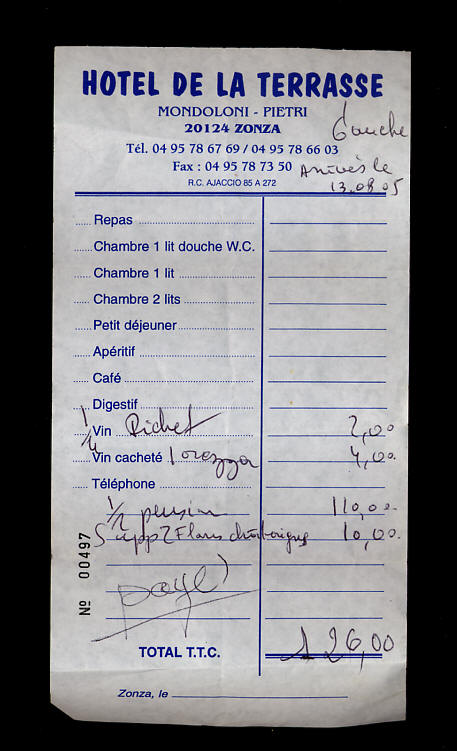 HOTEL DE LA TERRASSE
MONDOLONI - PIETRI
20124 ZONZA
Gauche
Tél. 04 95 78 67 69 / 04 95 78 66 03
Fax : 04 95 78 73 50
Arrivés le
R.C. AJACCIO 85 A 272
13.08.05
Repas
Chambre 1 lit douche W.C.
Chambre 1 lit
Chambre 2 lits
Petit déjeuner
Apéritif
Café
Digestif
1/4 Vin Pichet 2,00
Vin cacheté 1 orezza 4,00
Téléphone
1/2 pension 110,00
Supp 2 Flans 10,00
payé
Nº 00497
TOTAL T.T.C. 126,00
Zonza, le